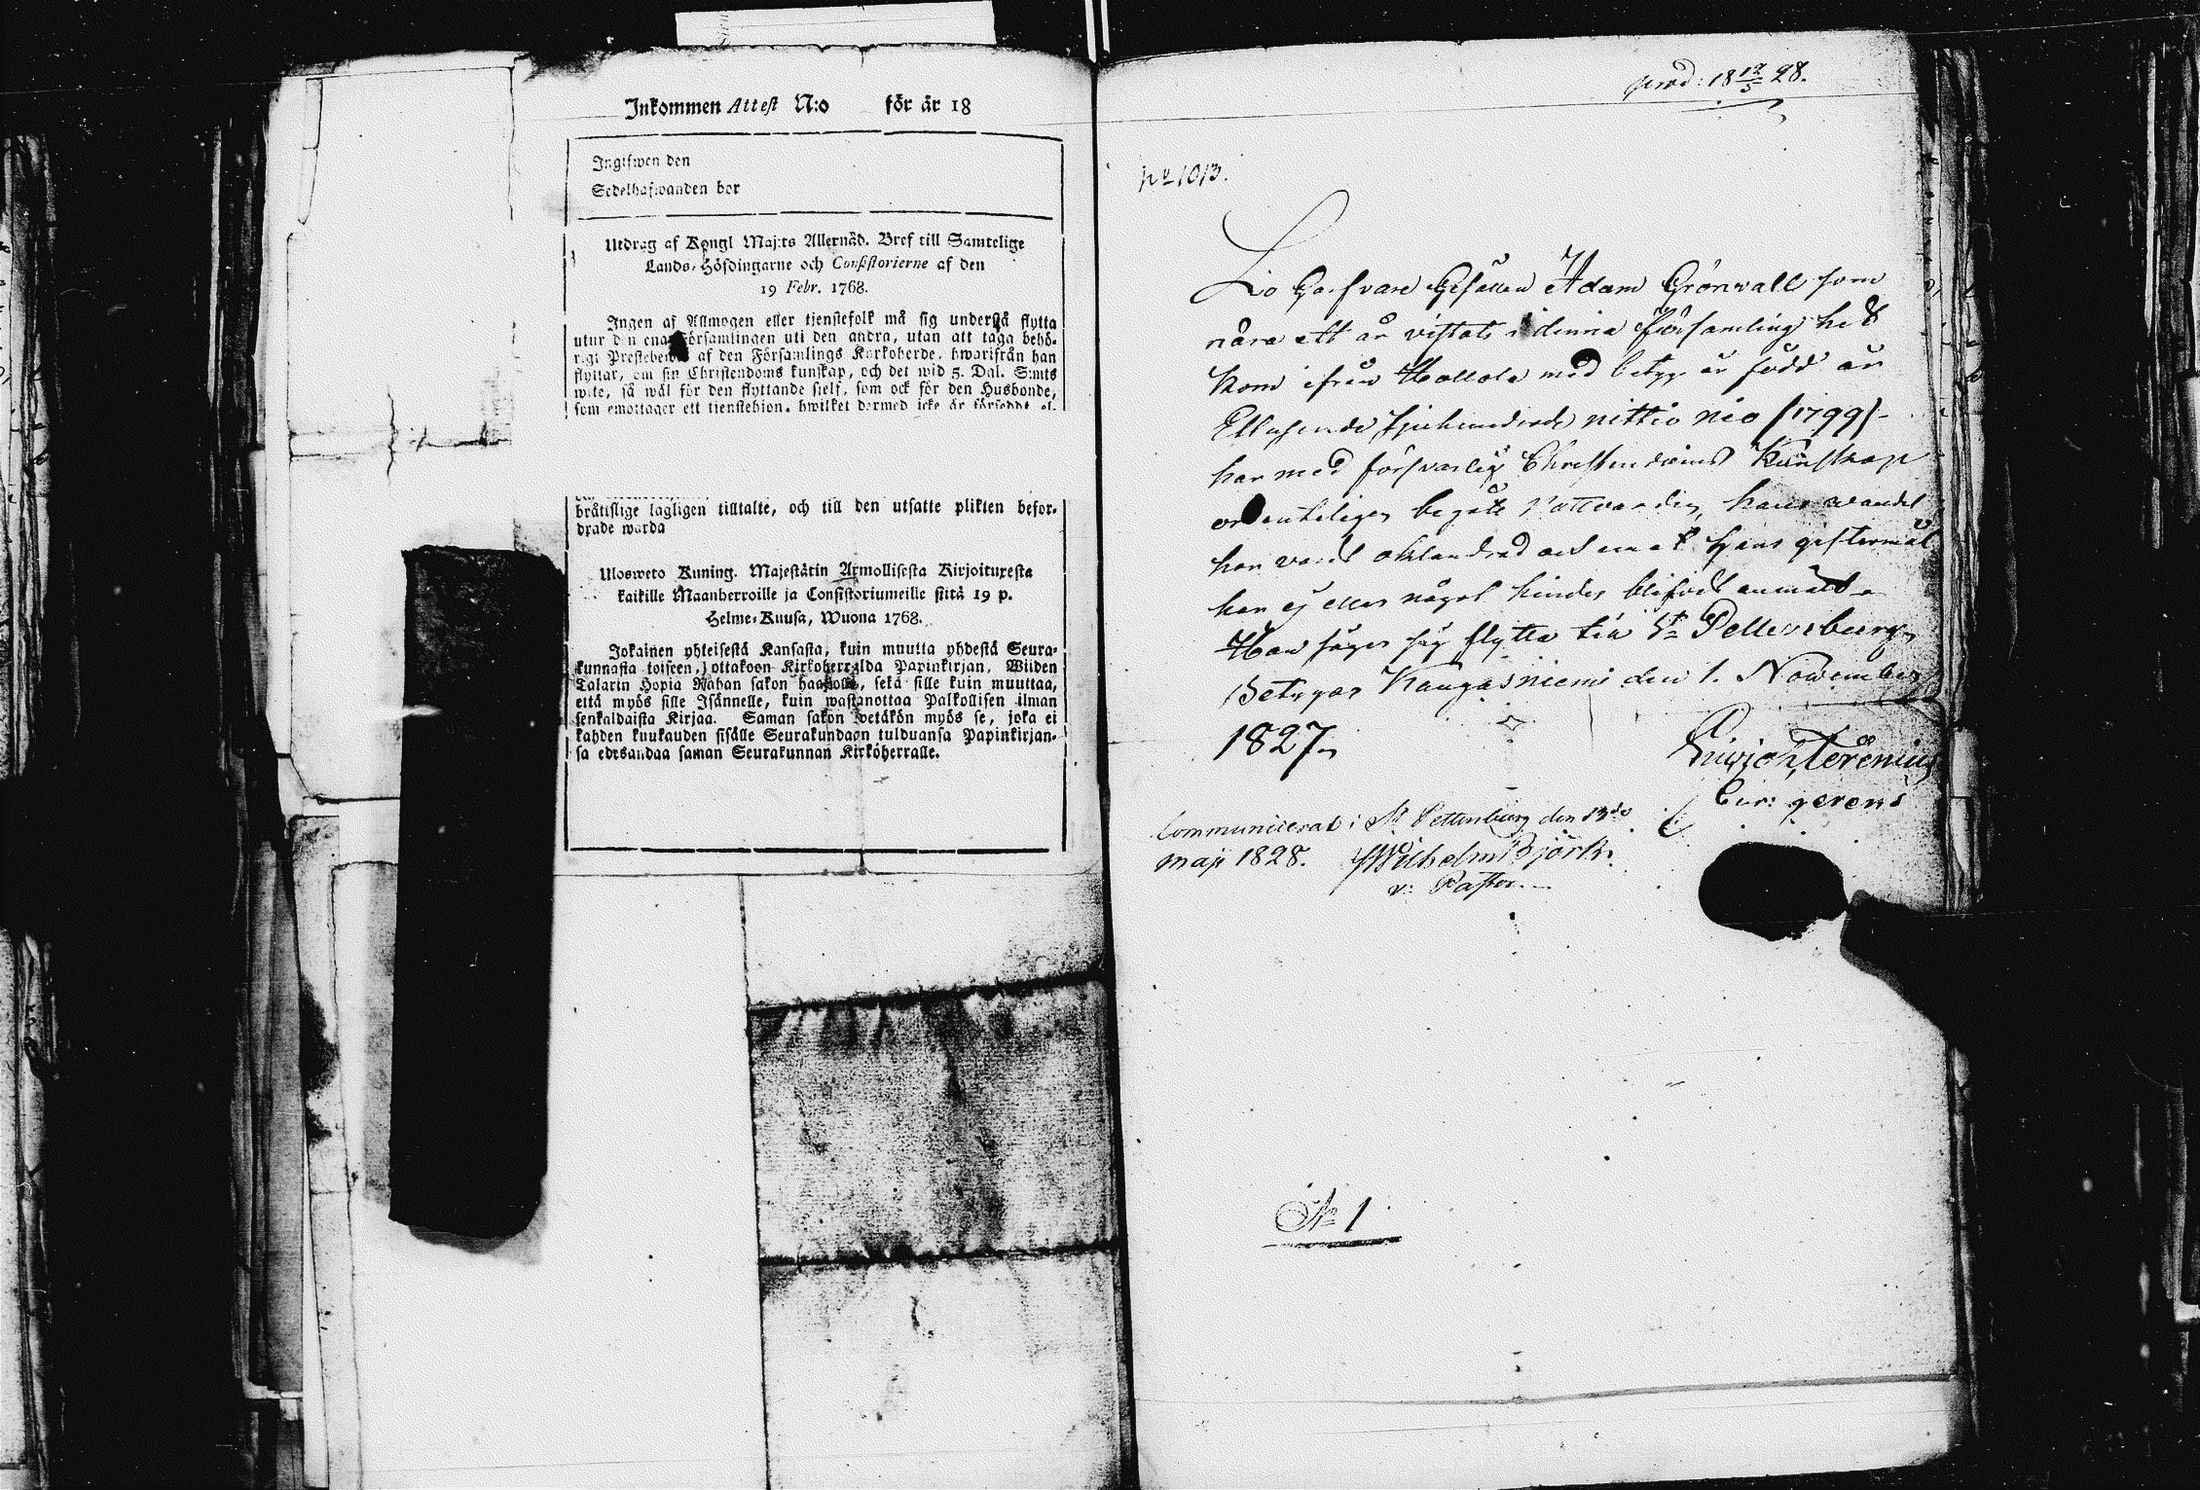 Inkommen Attest N:o för år 18
Ingifwen den
Sedelhafwanden bor
Utdrag af Kongl Maj:ts Allernåd. Bref till Samtelige
Lands-Höfdingarne och Consistorierne af den
19 Febr. 1768.
Ingen af Allmogen eller tjenstefolk må sig understå flytta
utur den ena Församlingen uti den andra, utan att taga behö-
rigt Prestebe af den Församlings Kyrkoherde, hwarifrån han
flyttar, om sin Christendoms kunskap, och det wid 5. Dal. S:mts
wite, så wäl för den flyttande sjelf, som ock för den Husbonde,
som emottager ett tjenstehjon, hwilket dermed icke är försedt el-
bråttslige lagligen tilltalte, och till den utsatte plikten befor-
drade warda
Ulosweto Kuning. Majestätin Armollisesta Kirjoituxesta
kaikille Maanherroille ja Consistoriumeille siitä 19 p.
Helme-Kuusa, Wuona 1768.
Jokainen yhteisestä Kansasta, kuin muutta yhdestä Seura-
kunnasta toiseen, ottakoon Kirkoherralda Papinkirjan, Wiiden
Talarin Hopia Rahan sakon haastolla, sekä sille kuin muuttaa,
että myös sille Isännelle, kuin wastanottaa Palkollisen ilman
senkaldaista Kirjaa. Saman sakon wetäkön myös se, joka ei
kahden kuukauden sisälle Seurakundaan tulduansa Papinkirjan-
sa edesandaa saman Seurakunnan Kirköherralle.
prod: 18 12/5 28.
No 1013.
Lo Garfvare Gesällen Adam Grönvall som
nära ett år vistats i denna församling hit
kom ifrån Hollola med betyg är född år
Ettusende sjuhundrade nittio nio (1799)
har med försvarlig Christendoms Kunskap
ordenteligen begått nattvarden, hans wandel
har varit oklandrad och emot hans giftermål
har ej eller något hinder blifvit anmäldt
Han säger sig flytta till St Pettersburg,
Betygar Kangasniemi den 1. November
1827.
Terenius
Cur: gerens
Communicerat i St Pettersburg den 13de
maji 1828. Wilhelm Björk.
v: Pastor.
No 1